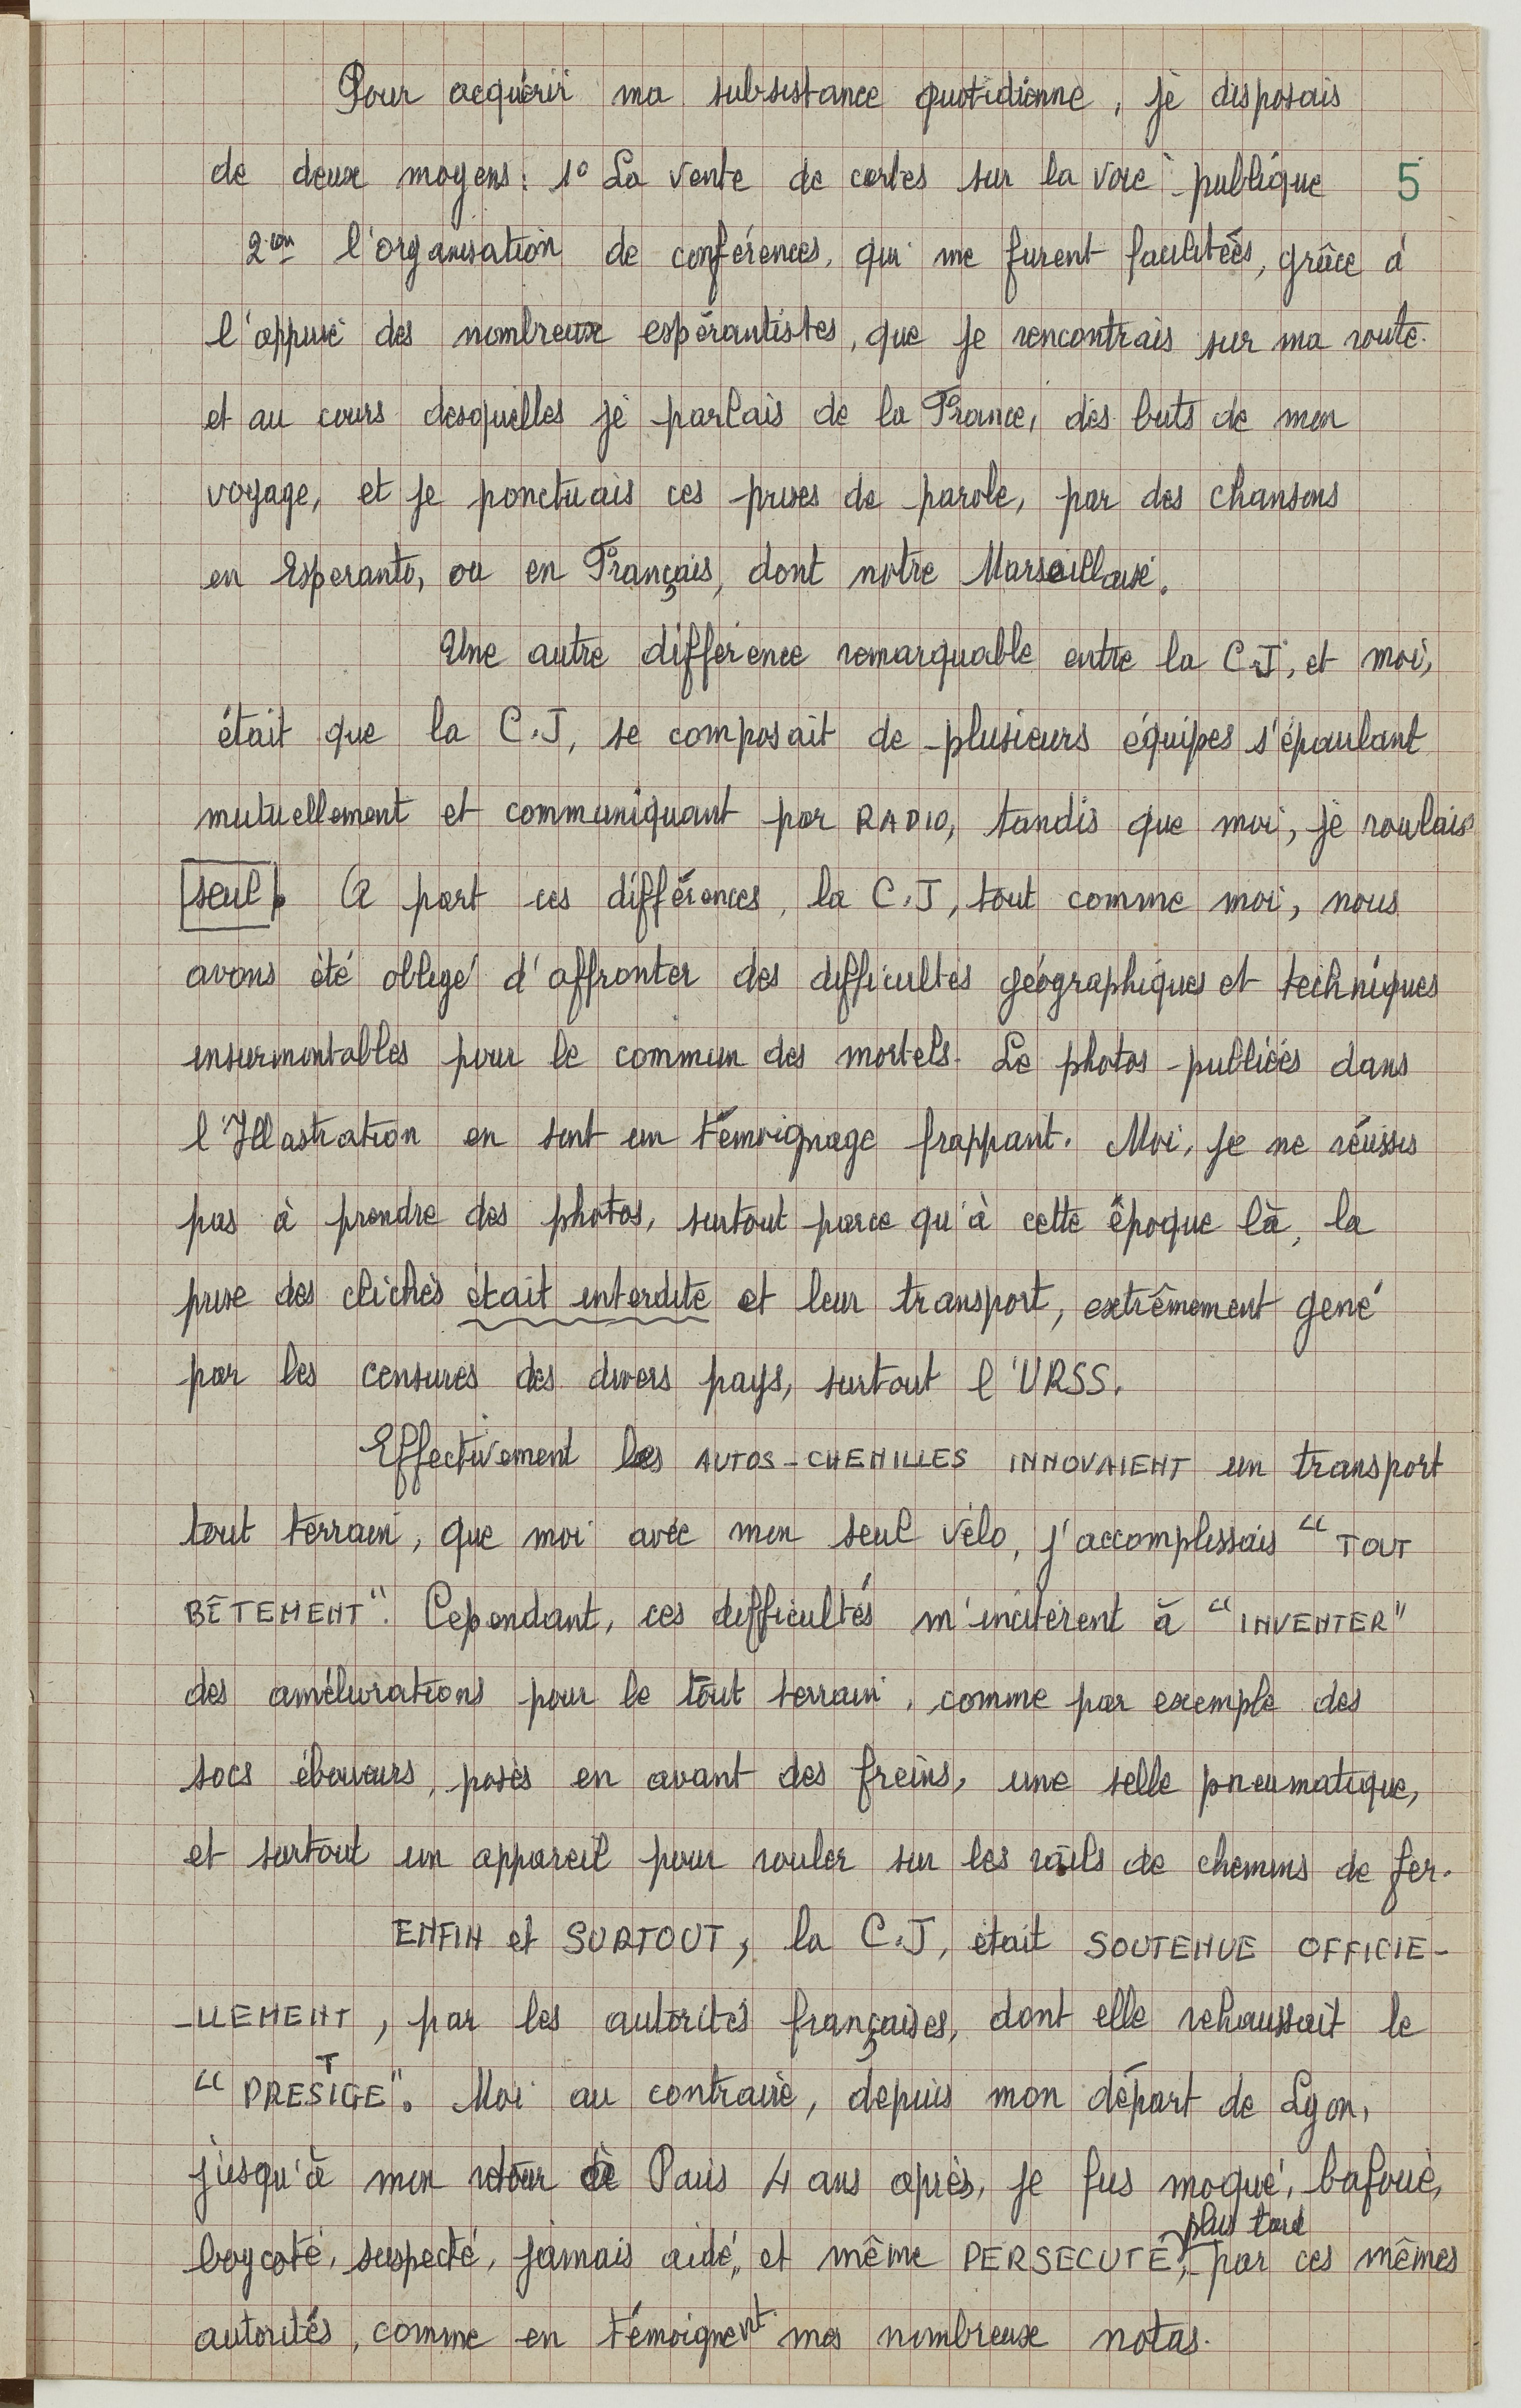 Pour acquérir ma subsistance quotidienne, je disposais
de deux moyens: 1° La vente de cartes sur la voie publique 5
2em l'organisation de conférences, qui me furent facilitées, grâce à
l'appui des nombreux espérantistes, que je rencontrais sur ma route.
et au cours desquelles je parlais de la France, des buts de mon
voyage, et je ponctuais ces prises de parole, par des chansons
en Esperanto, ou en Français, dont notre Marseillaise.
Une autre différence remarquable entre la C.J, et moi,
était que la C.J, se composait de plusieurs équipes s'épaulant
mutuellement et communiquant par RADIO, tandis que moi, je roulais
seul. A part ces différences, la C.J, tout comme moi, nous
avons été obligé d'affronter des difficultés géographiques et techniques
insurmontables pour le commun des mortels. Le photos publiées dans
l'Illastration en sont un témoignage frappant. Moi, je ne réussis
pas à prendre des photos, surtout parce qu'à cette époque là, la
prise des clichés était interdite et leur transport, extrêmement gené
par les censures des divers pays, surtout l'URSS.
Effectivement les AUTOS-CHENILLES INNOVAIENT un transport
tout terrain, que moi avec mon seul vélo, j'accomplissais "TOUT
BÊTEMENT". Cependant, ces difficultés m'incitèrent à "INVENTER"
des améliorations pour le tout terrain, comme par exemple des
socs éboueurs, posés en avant des freins, une selle pneumatique,
et surtout un appareil pour rouler sur les rails de chemins de fer.
ENFIN et SURTOUT, la C.J, était SOUTENUE OFFICIE-
-LLEMENT, par les autorités françaises, dont elle rehaussait le
"PRESTIGE". Moi au contraire, depuis mon départ de Lyon,
jusqu'à mon retour à Paris 4 ans après, je fus moqué, bafoué,
boycoté, suspecté, jamais aidé, et même PERSECUTÉ, plus tard par ces mêmes
autorités, comme en témoignent mes nombreuse notas.